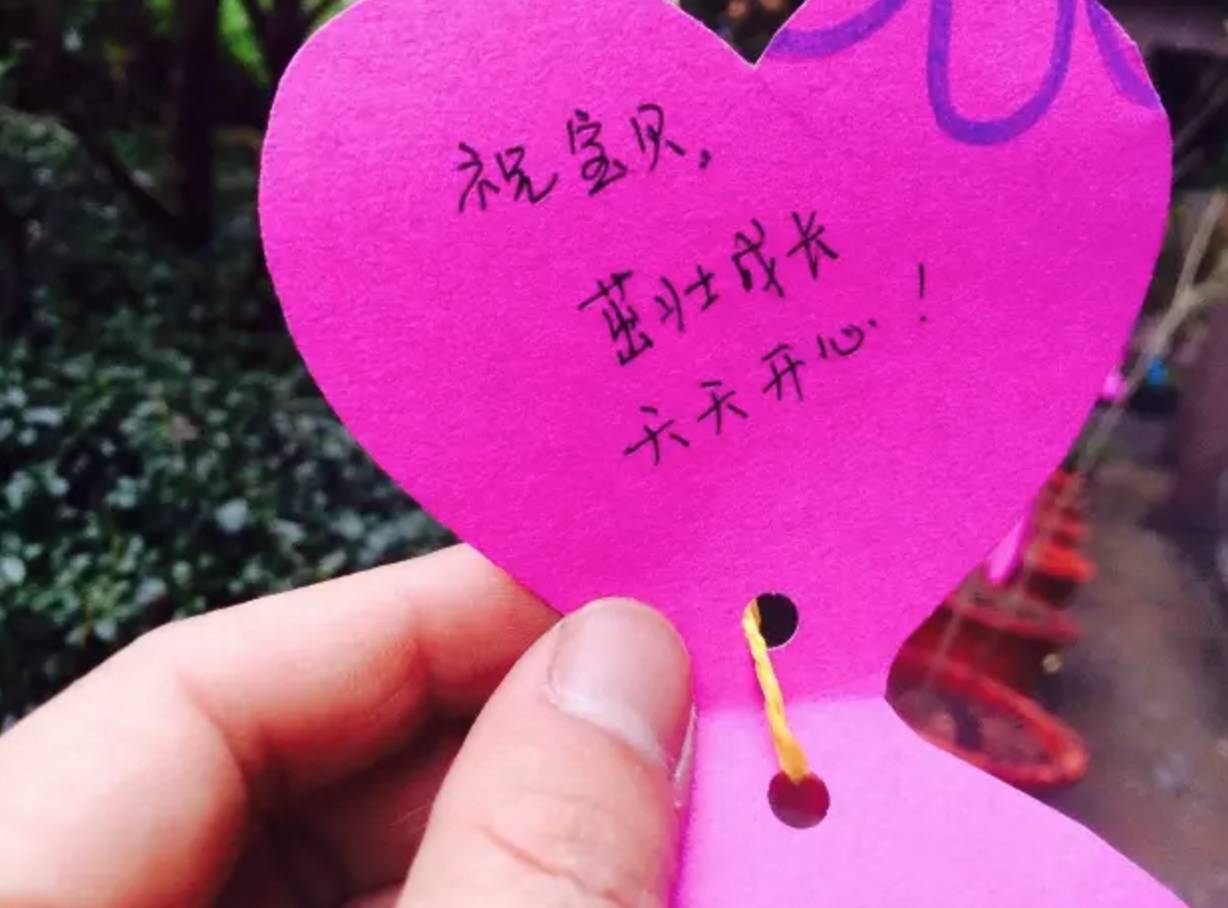 祝宝贝,
茁壮成长
天天开心!